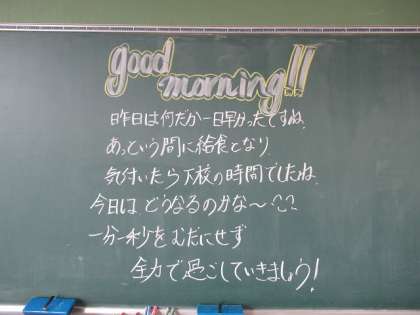 good
morning!!
昨日は何だか一日早かったですね。
あっという間に給食となり
気付いたら下校の時間でしたね。
今日は どうなるのかな〜??
一分一秒をむだにせず
全力で過ごしていきましょう!